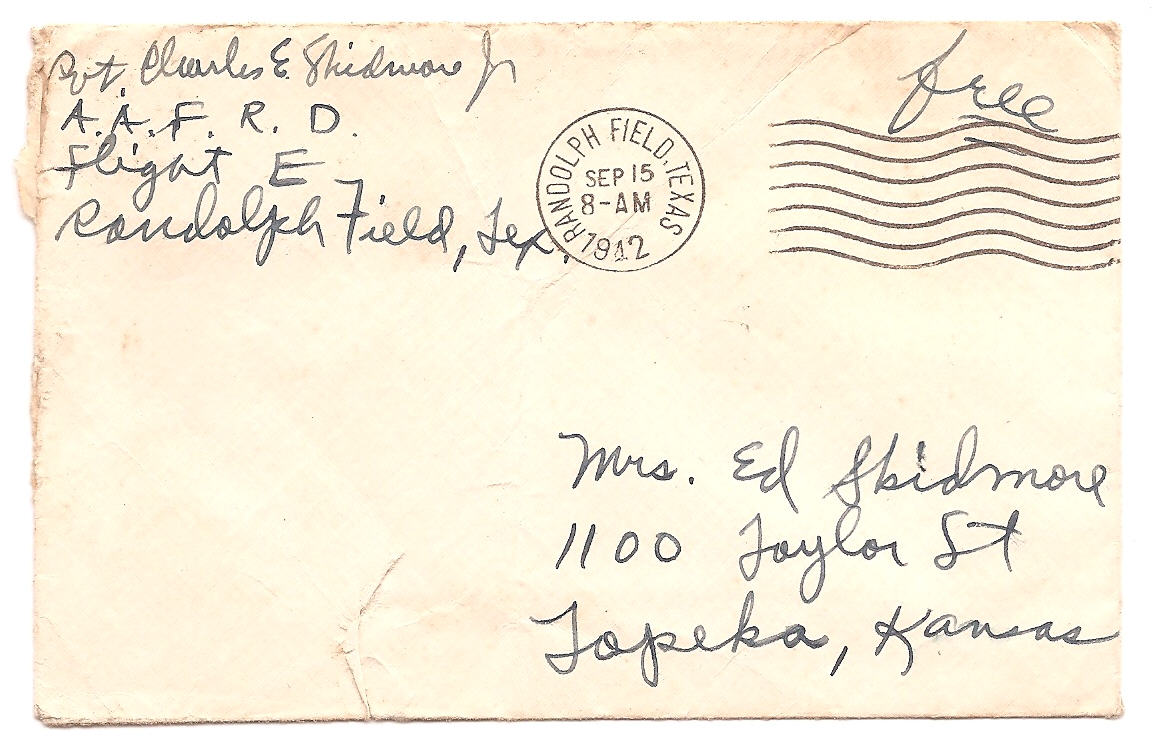 Pvt. Charles E. Skidmore Jr
A.A.F.R.D.
Flight E
Randolph Field, Tex.
free
RANDOLPH FIELD, TEXAS
SEP 15
8-AM
1942
Mrs. Ed Skidmore
1100 Taylor St
Topeka, Kansas